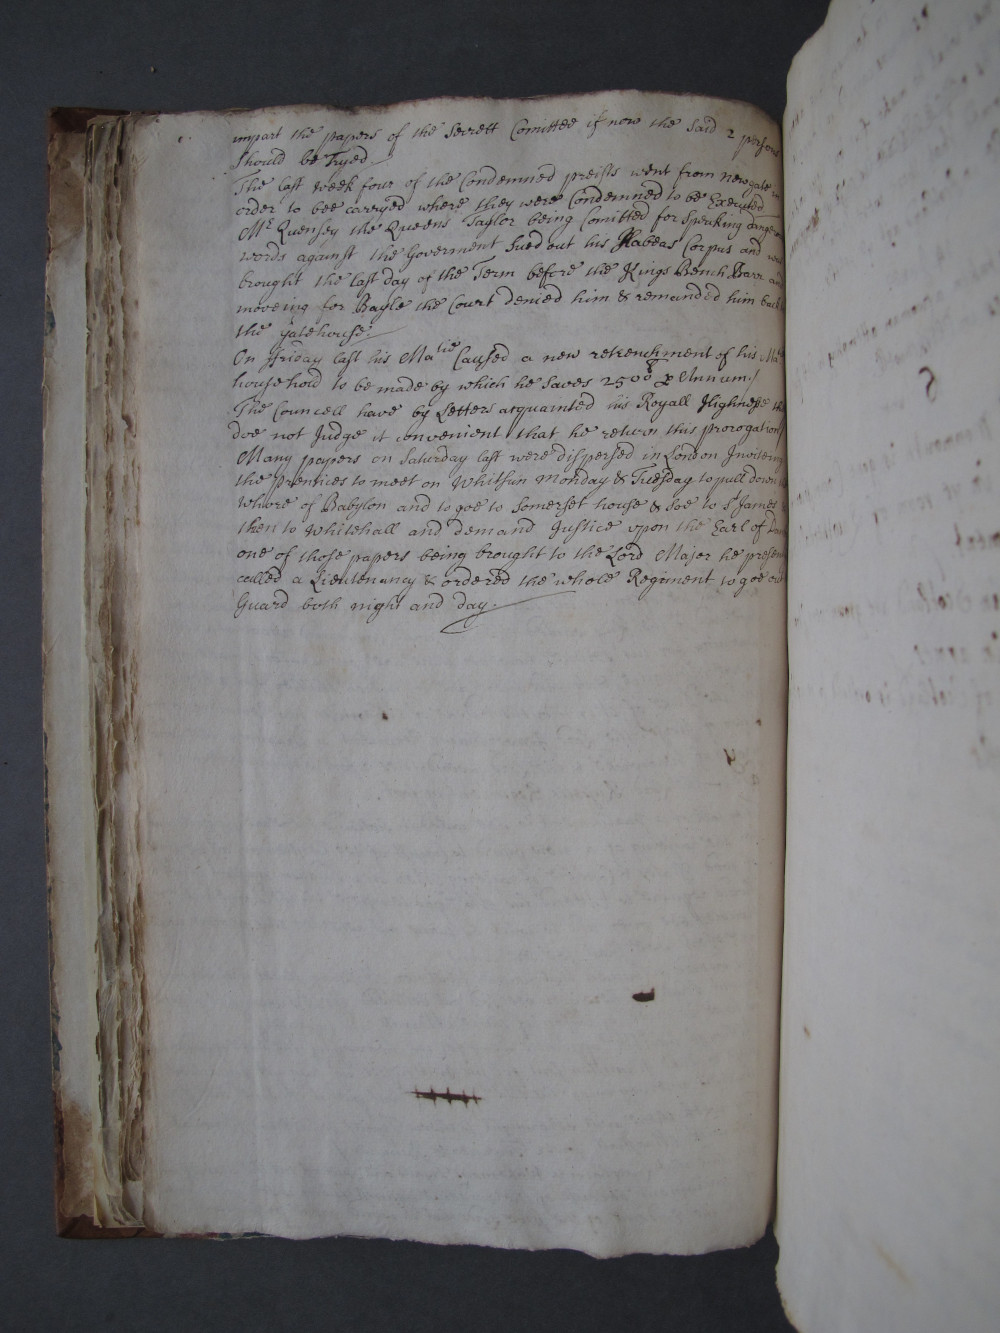 impart the papers of the Secrett Comittee if now the said 2 persons
should be Tryed
The last week four of the Condemned preists went from newgate in
order to bee carryed where they were Condemned to be Executed
Mr Quensey the Queens Taylor being Comitted for speaking dangerous
words against the Goverment sued out his Habeas Corpus and
brought the last day of the Term before the Kings Bench Barr and
moveing for Bayle the Court denied him & remanded him back to
the gatehouse.
On Friday last his Matie Caused a new retrenchment of his Maties
household to be made by which he saves 2500 £ ⅌ Annum
The Councell have by Letters acquainted his Royall Highnesse
doe not Judge it convenient that he return this prorogation
Many papers on Saturday last were dispersed in London Inviteing
the prentices to meet on Whitsun Monday & Tuesday to pull down
Whore of Babylon and to goe to Somerset house & soe to St James
then to Whitehall and demand Justice upon the Earl of
one of those papers being brought to the Lord Major he
called a Lieutenancy & ordered the whole Regiment to goe
Guard both night and day.